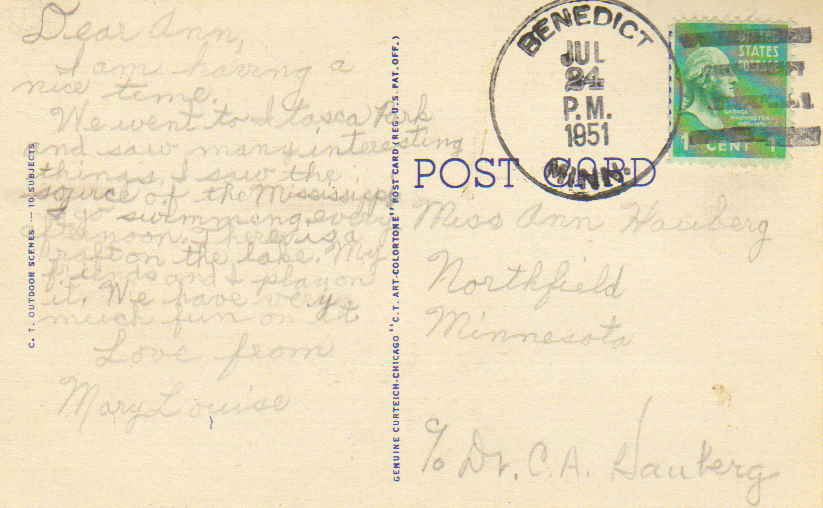 Dear Ann,
I am having a
nice time.
We went to Itasca Park
and saw many interesting
things. I saw the
source of the Mississippi
I go swimming every
afternoon. There is a
raft on the lake. My
friends and I play on
it. We have very
much fun on it
Love from
Mary Louise
C. T. OUTDOOR SCENES — 10 SUBJECTS
GENUINE CURTEICH-CHICAGO "C. T. ART-COLORTONE" POST CARD (REG. U. S. PAT. OFF.)
BENEDICT
JUL
24
P.M.
1951
MINN.
UNITED
STATES
POSTAGE
GEORGE
WASHINGTON
1 CENT 1
POST CARD
Miss Ann Hauberg
Northfield
Minnesota
c/o Dr. C.A. Hauberg